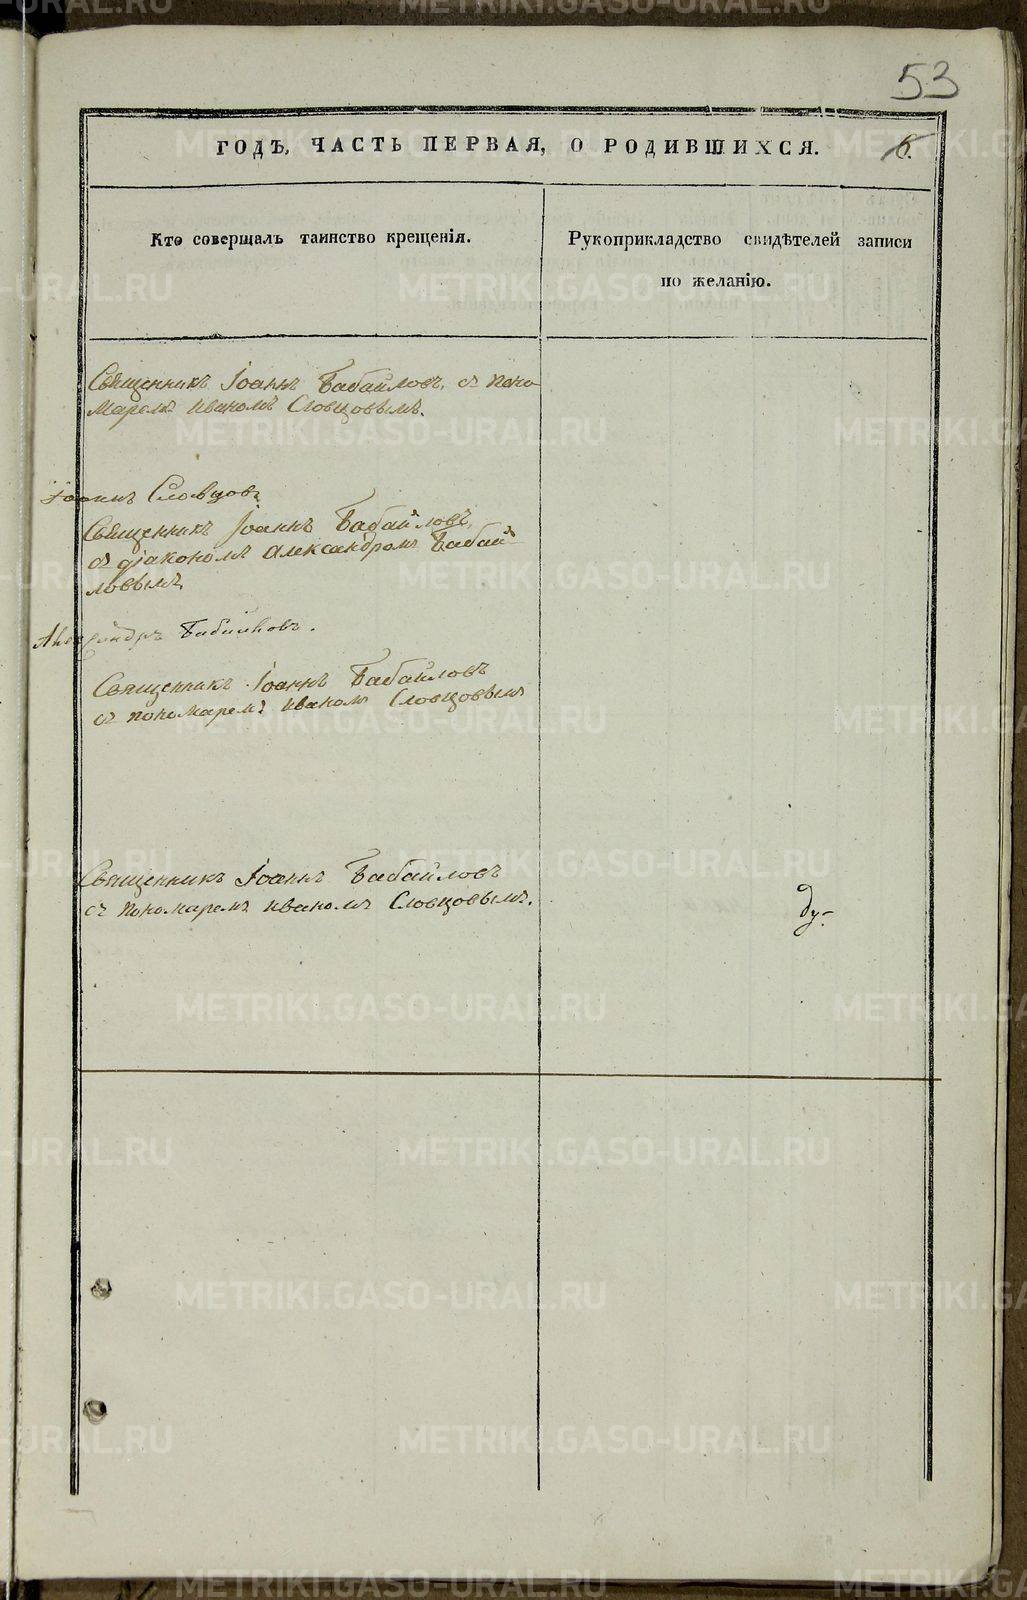 53
ГОДЪ, ЧАСТЬ ПЕРВАЯ, О РОДИВШИХСЯ. 6.
Кто совершалъ таинство крещенія.
Рукоприкладство свидѣтелей записи
по желанію.
Священникъ Іоаннъ Бабайловъ, съ поно-
маремъ иваномъ Словцовымъ.
Іоаннъ Словцовъ
Священникъ Іоаннъ Бабайловъ,
съ діакономъ александромъ Бабай-
ловымъ,
Александръ Бабайловъ.
Священникъ Іоаннъ Бабайловъ
съ пономаремъ иваномъ Словцовымъ
Священникъ Іоаннъ Бабайловъ
съ пономаремъ иваномъ Словцовымъ.
ду-
METRIKI.GASO-URAL.RU